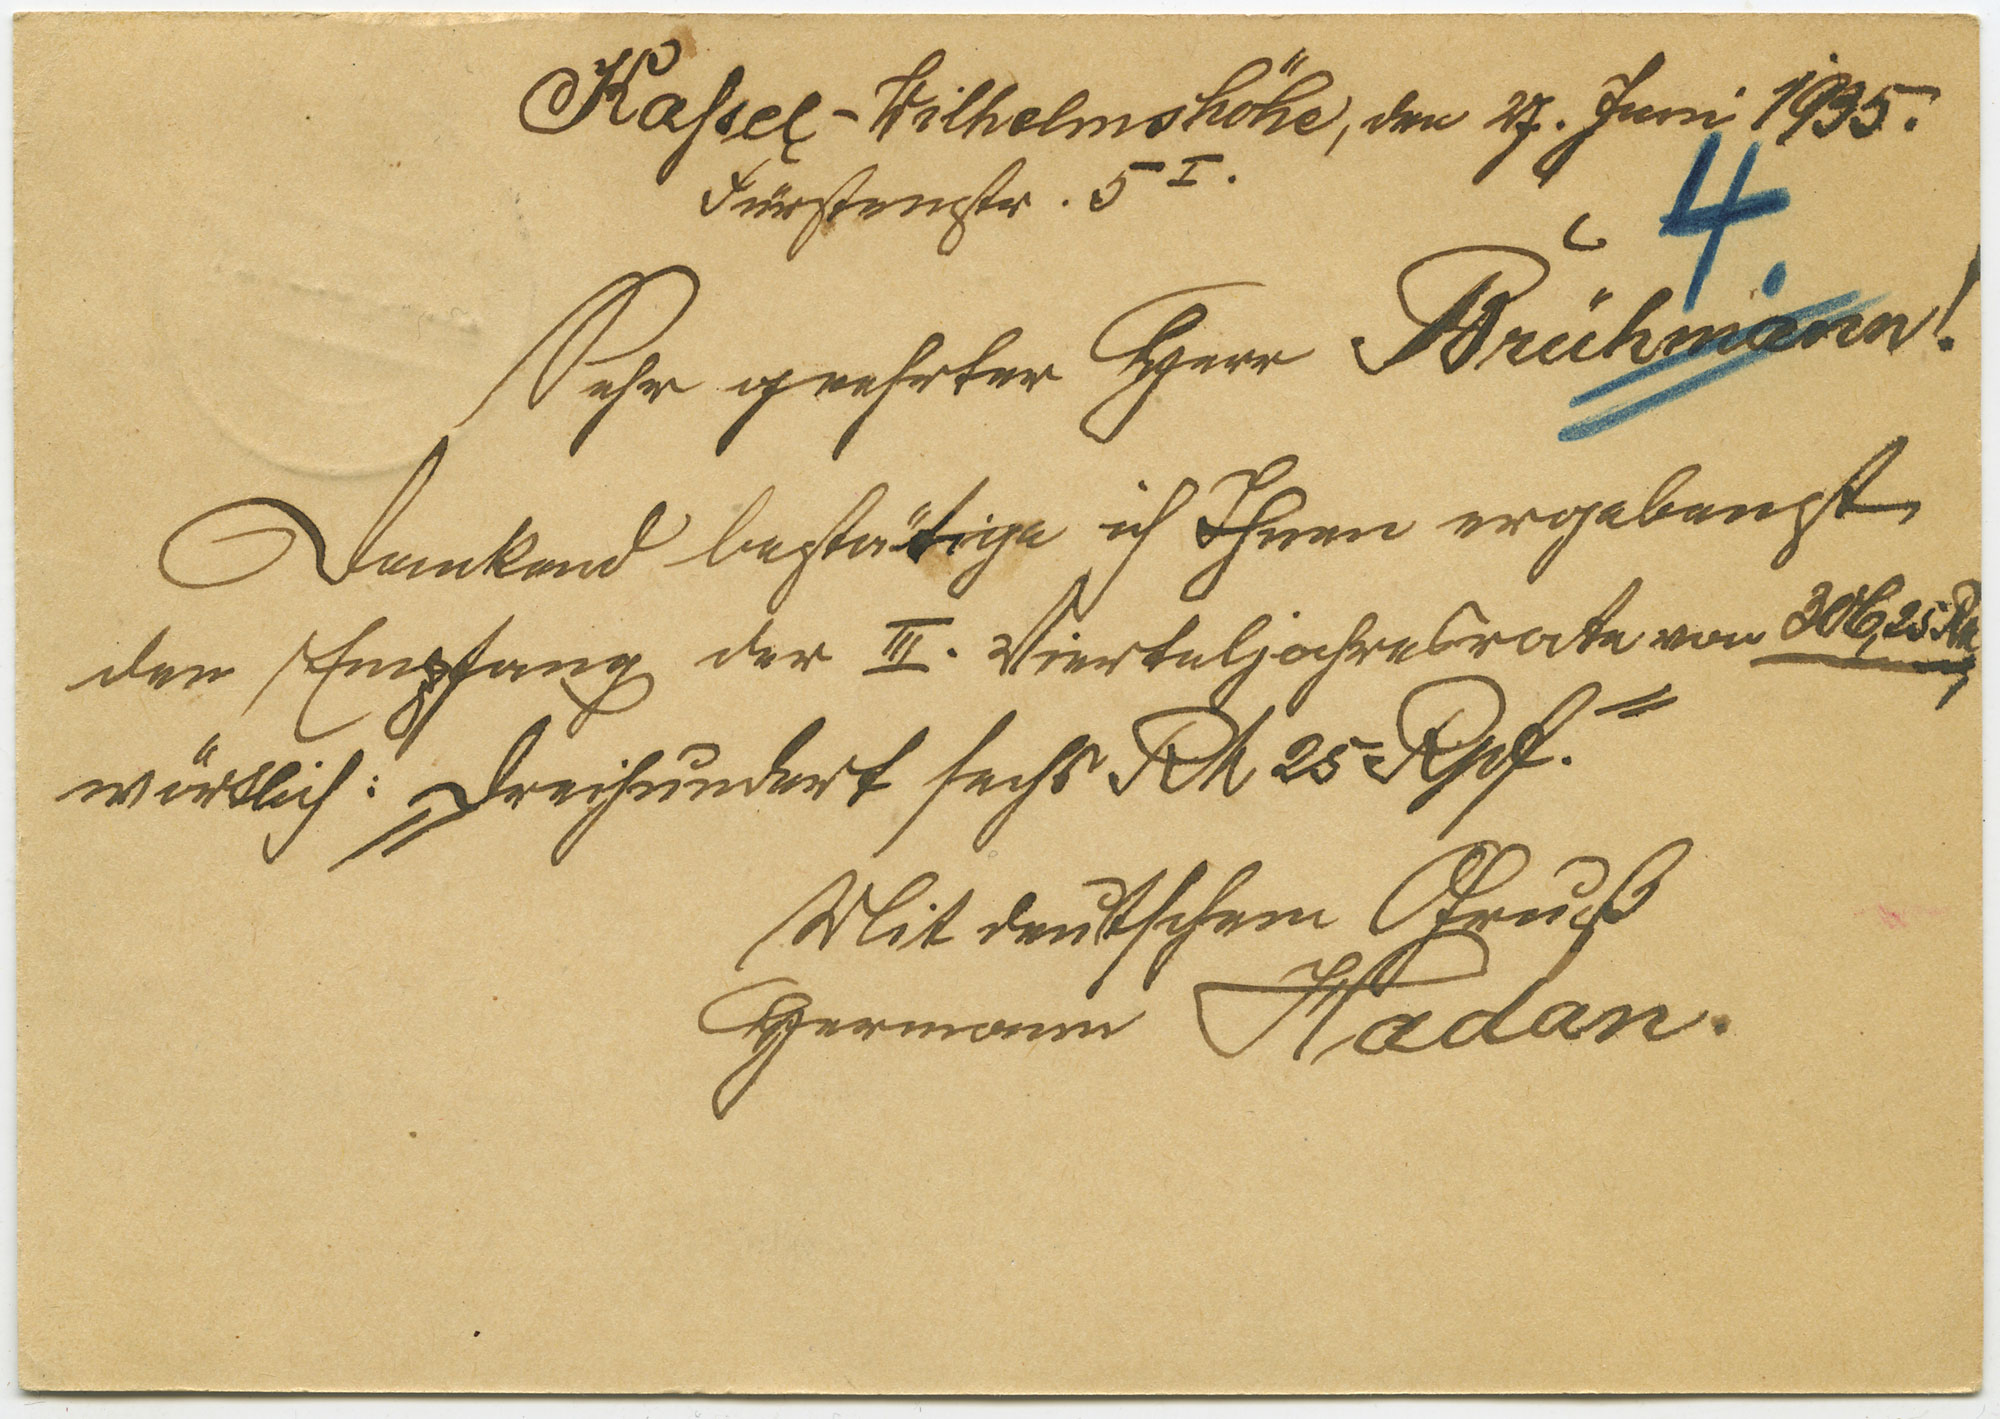 Kassel-Wilhelmshöhe, den 27. Juni 1935.
Fürstenstr. 5 I.
4.
Sehr geehrter Herr Brühmann!
Dankend bestätige ich Ihnen ergebenst
den Empfang der III. Vierteljahresrate von 306,25 RM
wörtlich: „Dreihundert sechs RM 25 Rpf."
Mit deutschem Gruß
Hermann Kadan.